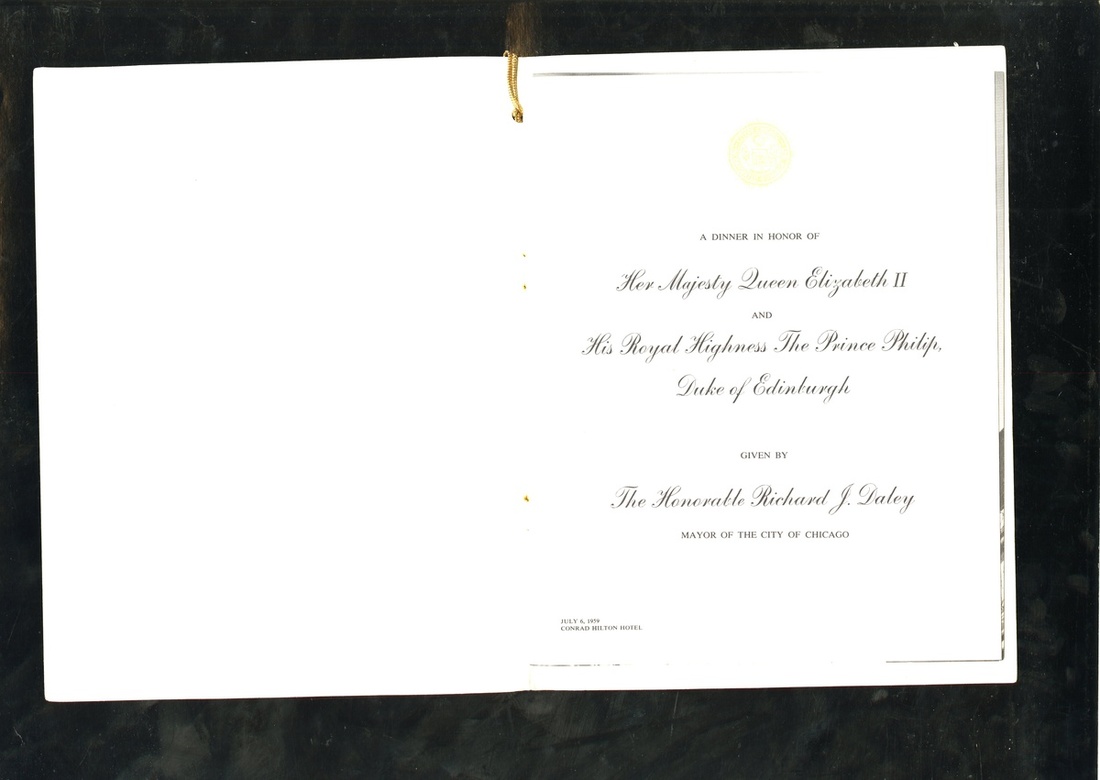 A DINNER IN HONOR OF
Her Majesty Queen Elizabeth II
AND
His Royal Highness The Prince Philip,
Duke of Edinburgh
GIVEN BY
The Honorable Richard J. Daley
MAYOR OF THE CITY OF CHICAGO
JULY 6, 1959
CONRAD HILTON HOTEL